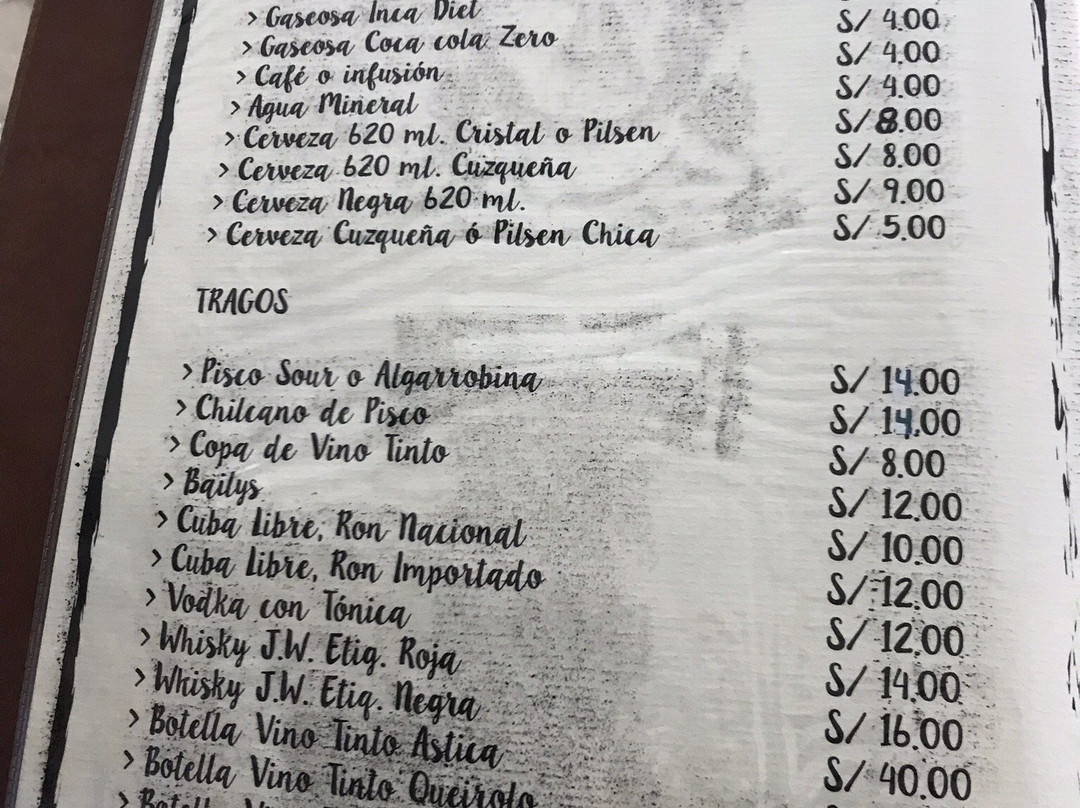 > Gaseosa Inca Diet
> Gaseosa Coca cola Zero S/ 4.00
> Café o infusión S/ 4.00
> Agua Mineral S/ 4.00
> Cerveza 620 ml. Cristal o Pilsen S/ 8.00
> Cerveza 620 ml. Cuzqueña S/ 8.00
> Cerveza Negra 620 ml. S/ 9.00
> Cerveza Cuzqueña ó Pilsen Chica S/ 5.00
TRAGOS
> Pisco Sour o Algarrobina S/ 14.00
> Chilcano de Pisco S/ 14.00
> Copa de Vino Tinto S/ 8.00
> Bailys S/ 12.00
> Cuba Libre, Ron Nacional S/ 10.00
> Cuba Libre, Ron Importado S/ 12.00
> Vodka con Tónica S/ 12.00
> Whisky J.W. Etiq. Roja S/ 14.00
> Whisky J.W. Etiq. Negra S/ 16.00
> Botella Vino Tinto Astica S/ 40.00
> Botella Vino Tinto Queirolo